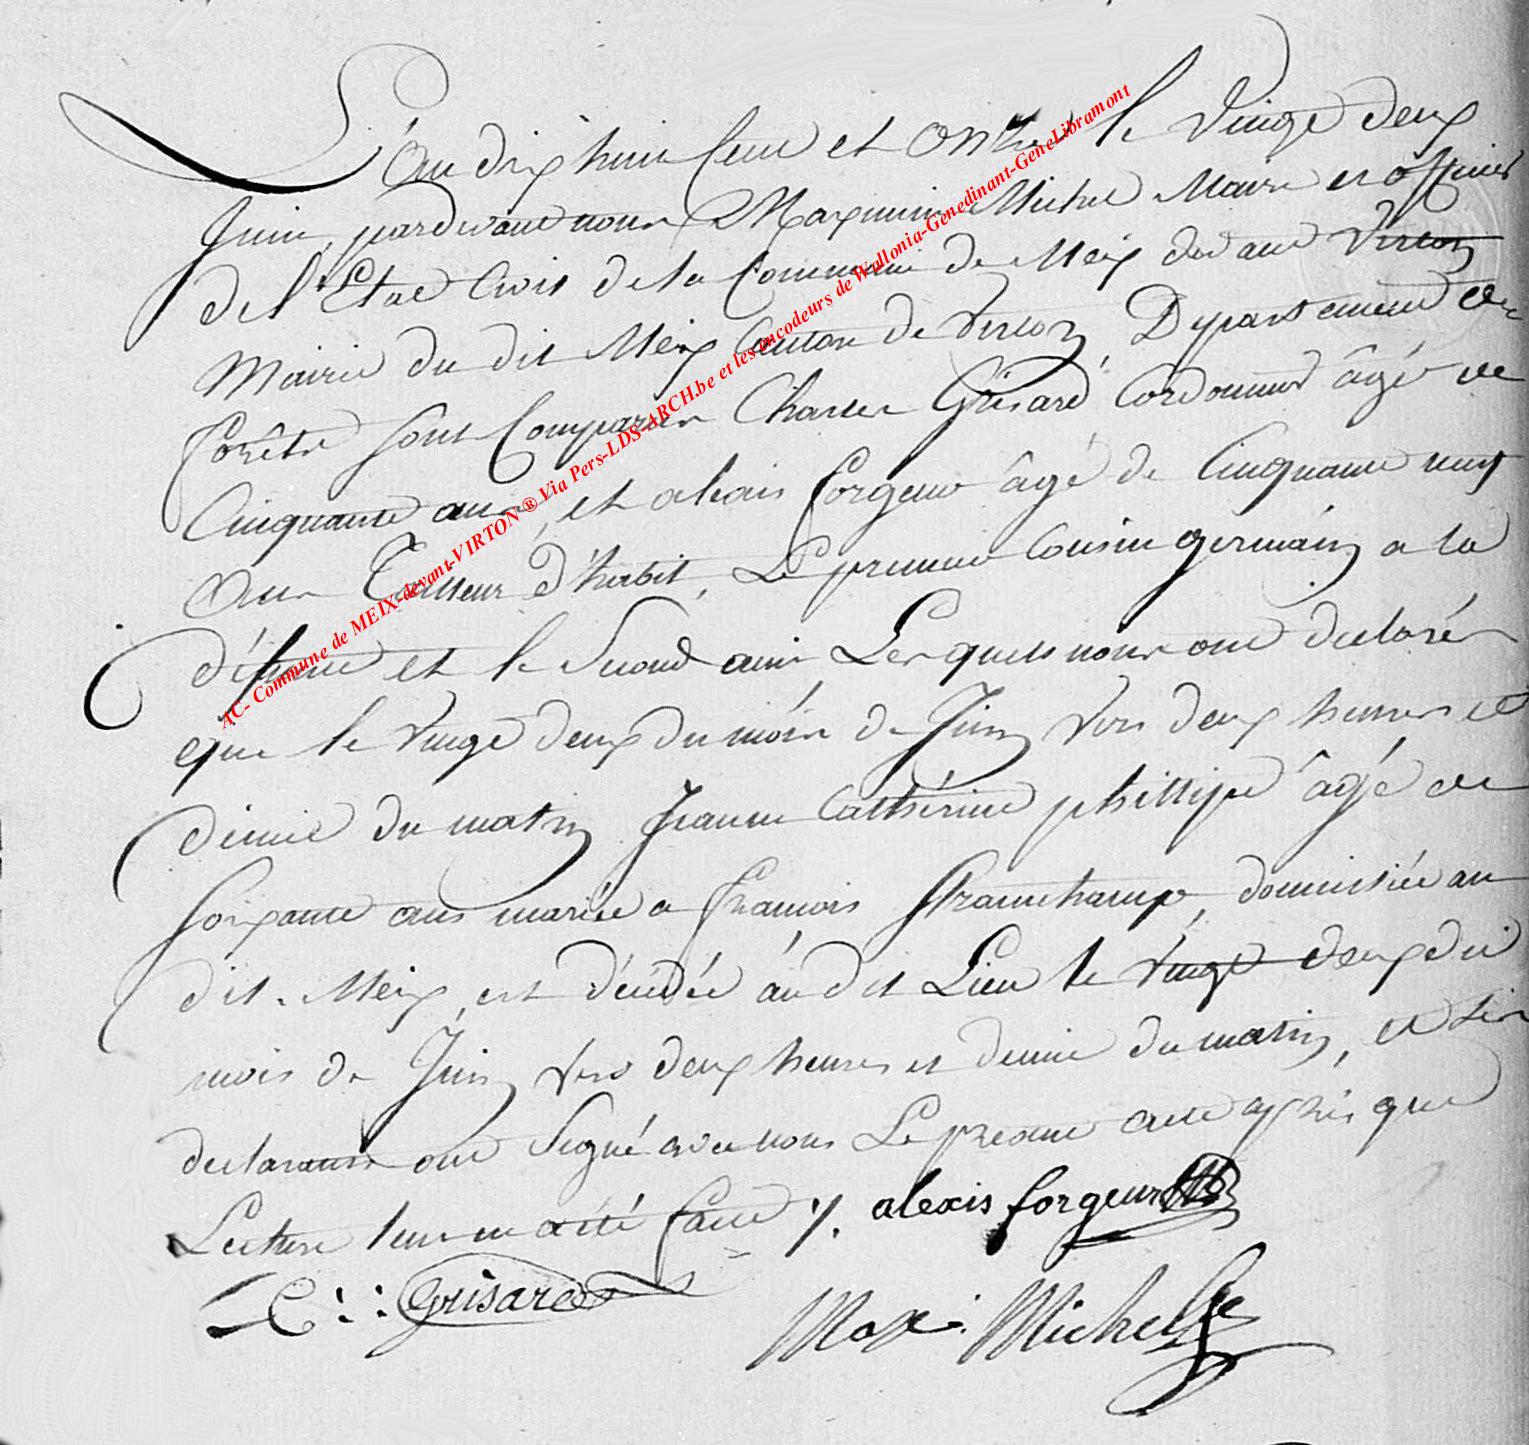 L'an dix huit Cent et onze le vingt deux
Juin, pardevant nous Maximin Michel Maire et officier
de l'Etat Civis de la Commune de Meix devant Virton
Mairie du dit Meix Canton de Virton Département des
forêts sont Comparus Charles Grisard Cordonnier âgé de
Cinquante ans, et alexis forgeur âgé de Cinquante neuf
ans Tailleur d'habit, Le premier Cousin germain a la
défunte et le Second ami, Lesquels nous ont declarés
que le vingt deux du mois de Juin vers deux heures et
demie du matin Jeanne Cathérine phillippe âgé de
soixante ans mariée a François franchamp, domiciliée au
dit Meix, est décédée audit Lieu le vingt deux du
mois de Juin vers deux heures et demie du matin, et les
declarants ont Signé avec nous Le présent acte après que
Lecture leur en a été faite /. alexis forgeur
C:: Grisard
Max: Michel
AC- Commune de MEIX-devant-VIRTON ® Via Pers-LDS-ARCH.be et les encodeurs de Wallonia-Genedinant-GeneLibramont